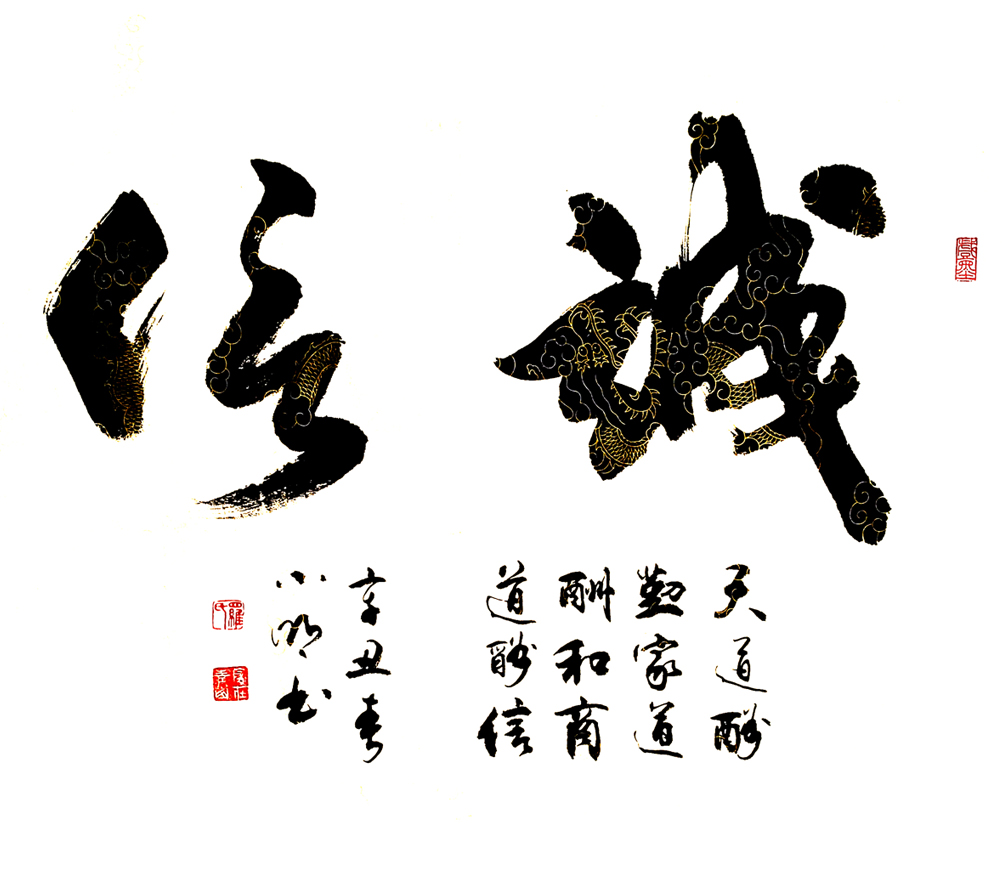 誠信
天道酬
勤家道
酬和商
道酬信
辛丑春
小明书
羅氏